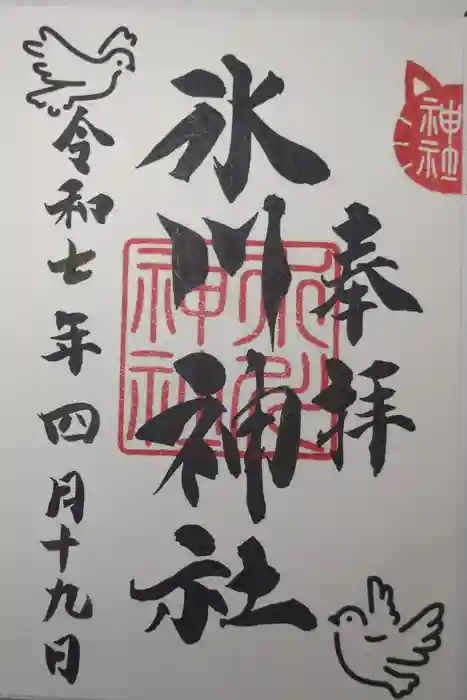 神社
奉拝
氷川神社
氷川神社
令和七年四月十九日